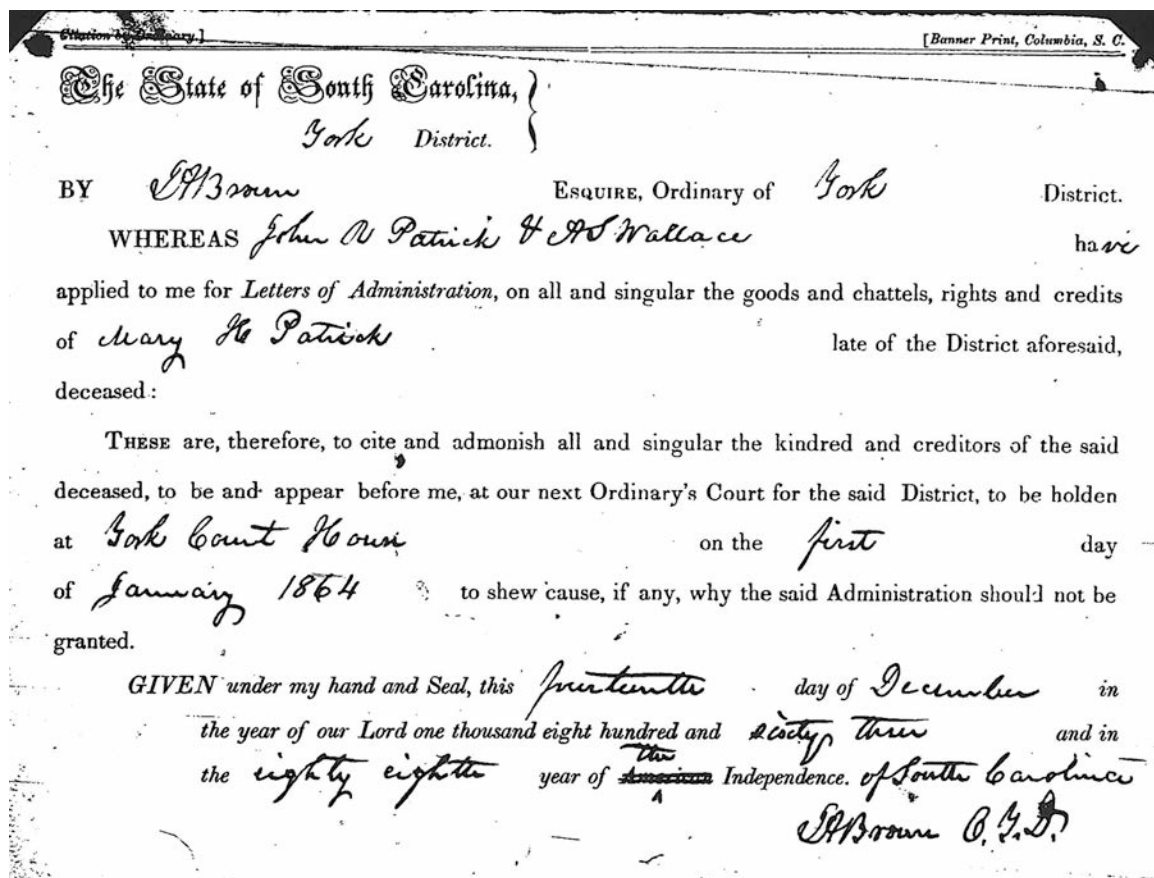 Citation by Ordinary.] [Banner Print, Columbia, S. C.
The State of South Carolina, }
York District.
BY Brown ESQUIRE, Ordinary of York District.
WHEREAS John R Patrick & A S Wallace have
applied to me for Letters of Administration, on all and singular the goods and chattels, rights and credits
of Mary H Patrick late of the District aforesaid,
deceased:
THESE are, therefore, to cite and admonish all and singular the kindred and creditors of the said
deceased, to be and appear before me, at our next Ordinary's Court for the said District, to be holden
at York Court House on the first day
of January 1864 to shew cause, if any, why the said Administration should not be
granted.
GIVEN under my hand and Seal, this fourteenth day of December in
the year of our Lord one thousand eight hundred and sixty three and in
the eighty eighth year of the American Independence. of South Carolina
Brown O.Y.D.